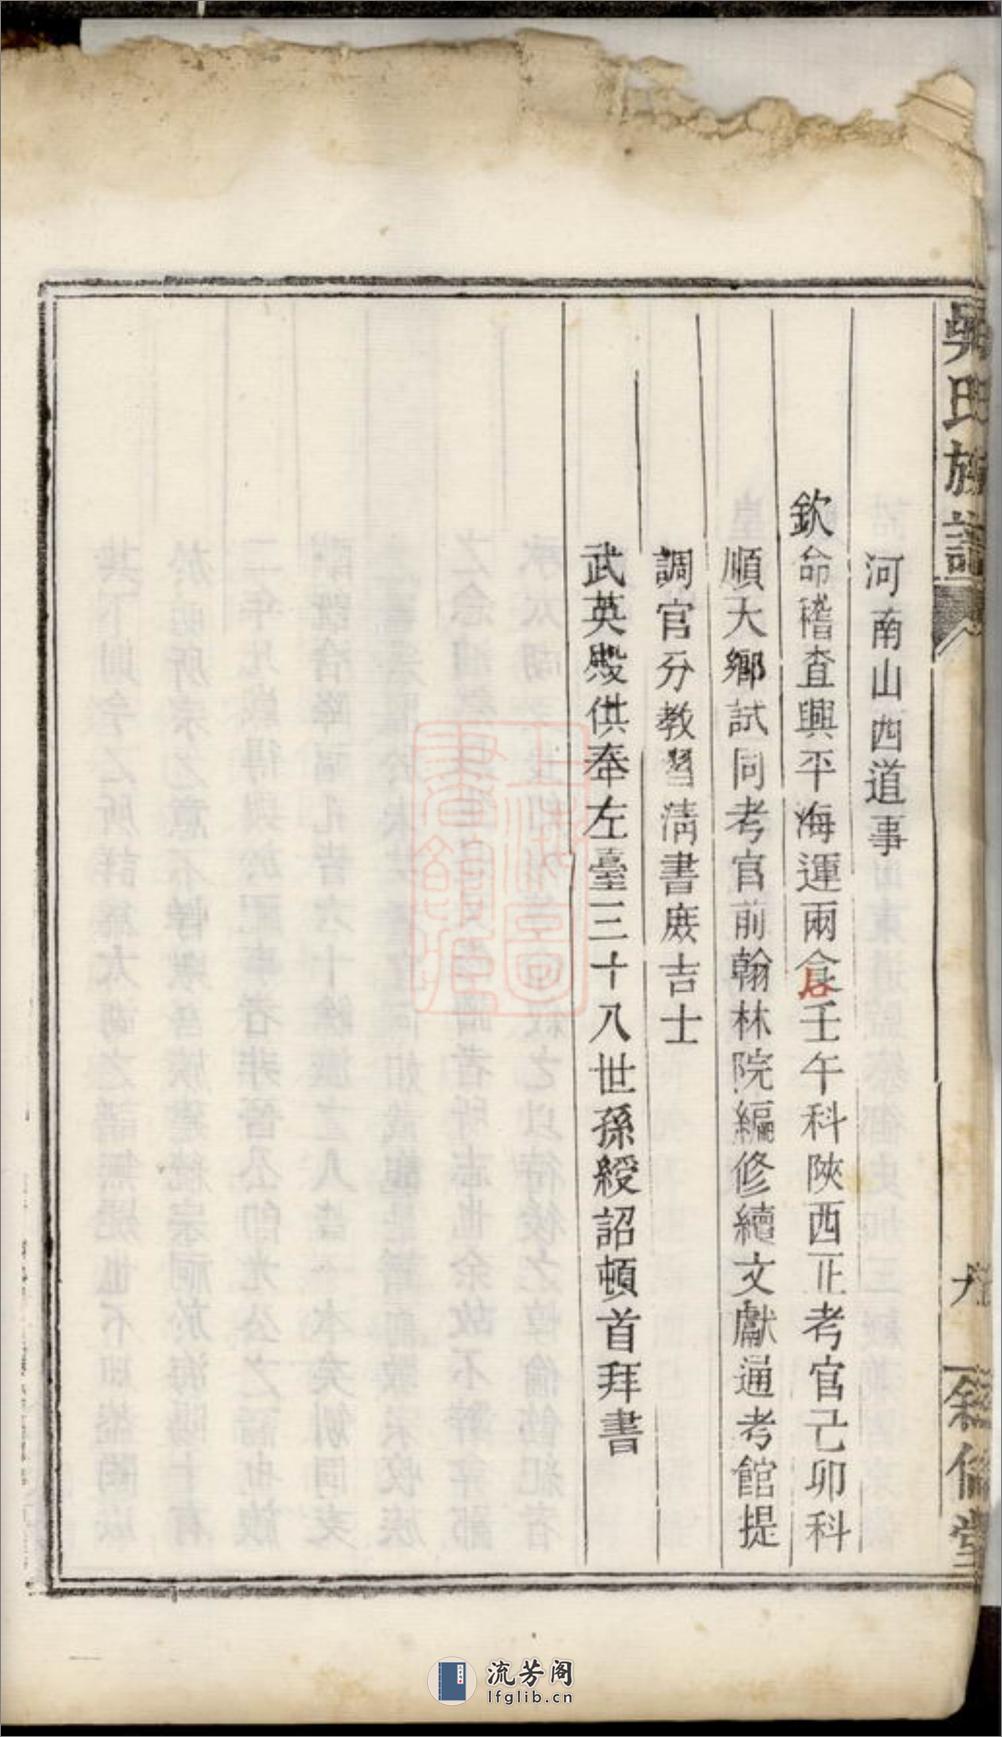 吳氏族譜
九
敘倫堂
河南山西道事
欽命稽查興平海運兩倉壬午科陝西正考官己卯科
順天鄉試同考官前翰林院編修續文獻通考館提
調官分教習清書庶吉士
武英殿供奉左臺三十八世孫綬詔頓首拜書
流芳阁
lfglib.cn